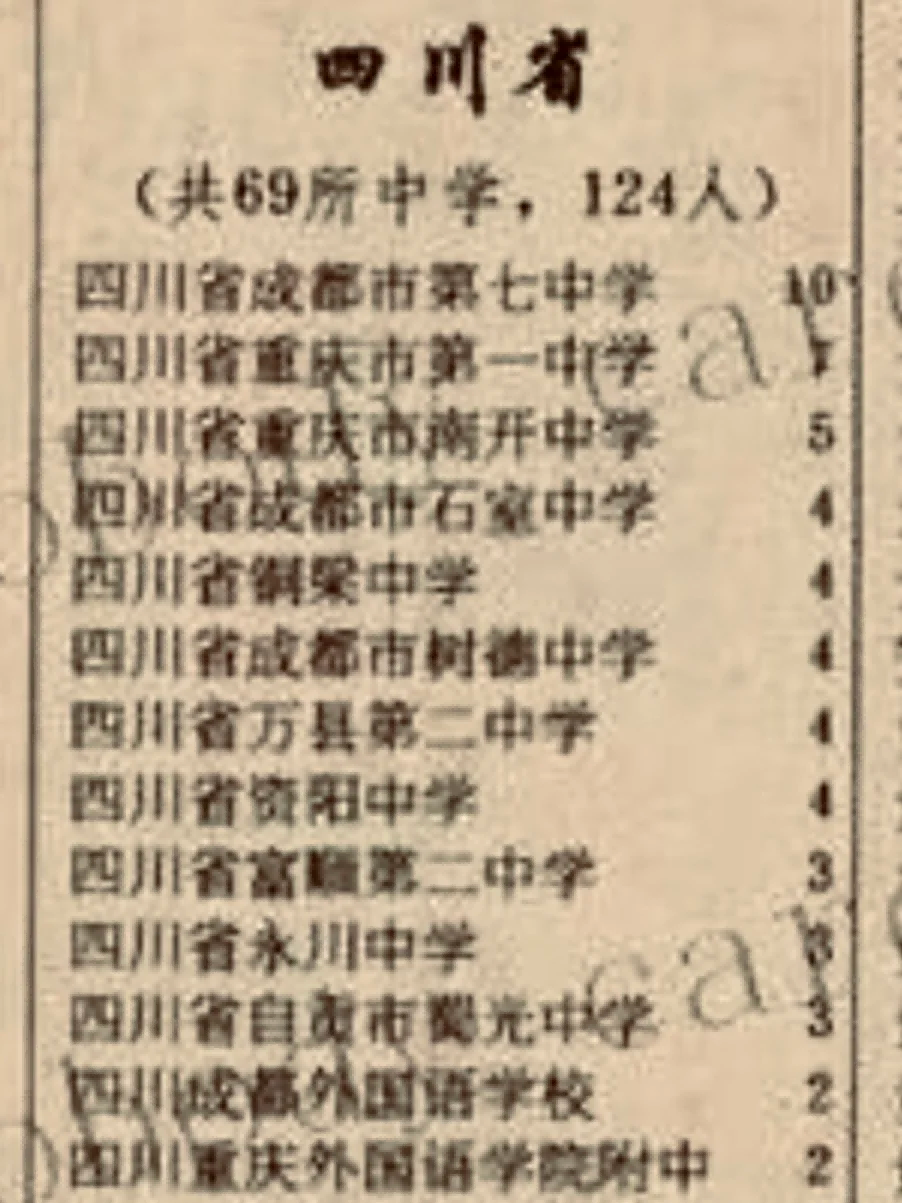 四川省
（共69所中学，124人）
四川省成都市第七中学 10
四川省重庆市第一中学
四川省重庆市南开中学 5
四川省成都市石室中学 4
四川省铜梁中学 4
四川省成都市树德中学 4
四川省万县第二中学 4
四川省资阳中学 4
四川省富顺第二中学 3
四川省永川中学 3
四川省自贡市蜀光中学 3
四川成都外国语学校 2
四川重庆外国语学院附中 2